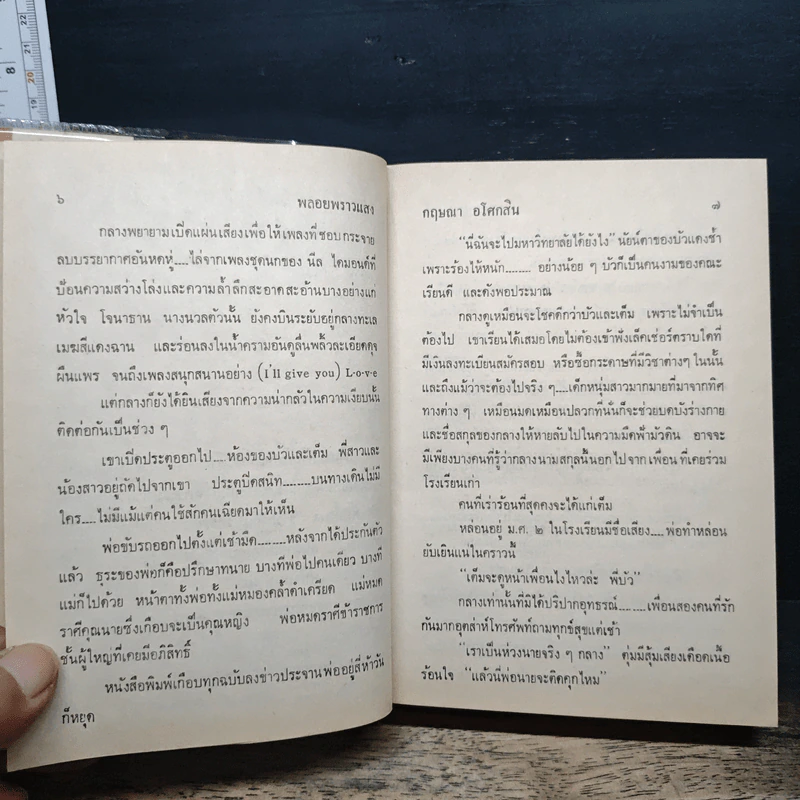 ๖ พลอยพราวแสง
กลางพยายามเปิดแผ่นเสียงเพื่อให้เพลงที่ชอบกระจาย
ลบบรรยากาศอันหดหู่.....ไล่จากเพลงชุดนกของ นีล ไดมอนด์ที่
ป้อนความสว่างโล่งและความล้ำลึกสะอาดสะอ้านบางอย่างแก่
หัวใจ โจนาธาน นางนวลตัวนั้น ยังคงบินระยับอยู่กลางทะเล
เมฆสีแดงฉาน และร่อนลงในน้ำครามอันดูลื่นพลิ้วละเอียดดุจ
ผืนแพร จนถึงเพลงสนุกสนานอย่าง (I'll give you) L-o-v-e
แต่กลางก็ยังได้ยินเสียงจากความน่ากลัวในความเงียบนั้น
ติดต่อกันเป็นช่วง ๆ
เขาเปิดประตูออกไป.....ห้องของบัวและเต็ม พี่สาวและ
น้องสาวอยู่ถัดไปจากเขา ประตูปิดสนิท.........บนทางเดินไม่มี
ใคร.....ไม่มีแม้แต่คนใช้สักคนเฉียดมาให้เห็น
พ่อขับรถออกไปตั้งแต่เช้ามืด.........หลังจากได้ประกันตัว
แล้ว ธุระของพ่อก็คือปรึกษาทนาย บางทีพ่อไปคนเดียว บางที
แม่ก็ไปด้วย หน้าตาทั้งพ่อทั้งแม่หมองคล้ำคำเครียด แม่หมด
ราศีคุณนายซึ่งเกือบจะเป็นคุณหญิง พ่อหมดราศีข้าราชการ
ชั้นผู้ใหญ่ที่เคยมีอภิสิทธิ์
หนังสือพิมพ์เกือบทุกฉบับลงข่าวประจานพ่ออยู่สี่ห้าวัน
ก็หยุด
กฤษณา อโศกสิน ๗
“นี่ฉันจะไปมหาวิทยาลัยได้ยังไง” นัยน์ตาของบัวแดงช้ำ
เพราะร้องไห้หนัก......... อย่างน้อย ๆ บัวก็เป็นคนงามของคณะ
เรียนดี และดังพอประมาณ
กลางดูเหมือนจะโชคดีกว่าบัวและเต็ม เพราะไม่จำเป็น
ต้องไป เขาเรียนได้เสมอโดยไม่ต้องเข้าฟังเล็คเช่อร์ตราบใดที่
มีเงินลงทะเบียนสมัครสอบ หรือซื้อกระดาษที่มีวิชาต่างๆ ในนั้น
และถึงแม้ว่าจะต้องไปจริง ๆ....เด็กหนุ่มสาวมากมายที่มาจากทิศ
ทางต่าง ๆ เหมือนมดเหมือนปลวกที่นั่นก็จะช่วยบดบังร่างกาย
และชื่อสกุลของกลางให้หายลับไปในความมืดฟ้ามัวดิน อาจจะ
มีเพียงบางคนที่รู้ว่ากลางนามสกุลนี้นอกไปจากเพื่อนที่เคยร่วม
โรงเรียนเก่า
คนที่เร่าร้อนที่สุดคงจะได้แก่เต็ม
หล่อนอยู่ ม.ศ. ๒ ในโรงเรียนมีชื่อเสียง.....พ่อทำหล่อน
ยับเยินแน่ในคราวนี้
“เต็มจะดูหน้าเพื่อนไงไหวล่ะ พี่บัว”
กลางเท่านั้นที่มิได้ปริปากอุทธรณ์.........เพื่อนสองคนที่รัก
กันมากอุตส่าห์โทรศัพท์ถามทุกข์สุขแต่เช้า
“เราเป็นห่วงนายจริง ๆ กลาง” ตุ่มมีสุ้มเสียงเดือดเนื้อ
ร้อนใจ “แล้วนี่พ่อนายจะติดคุกไหม”